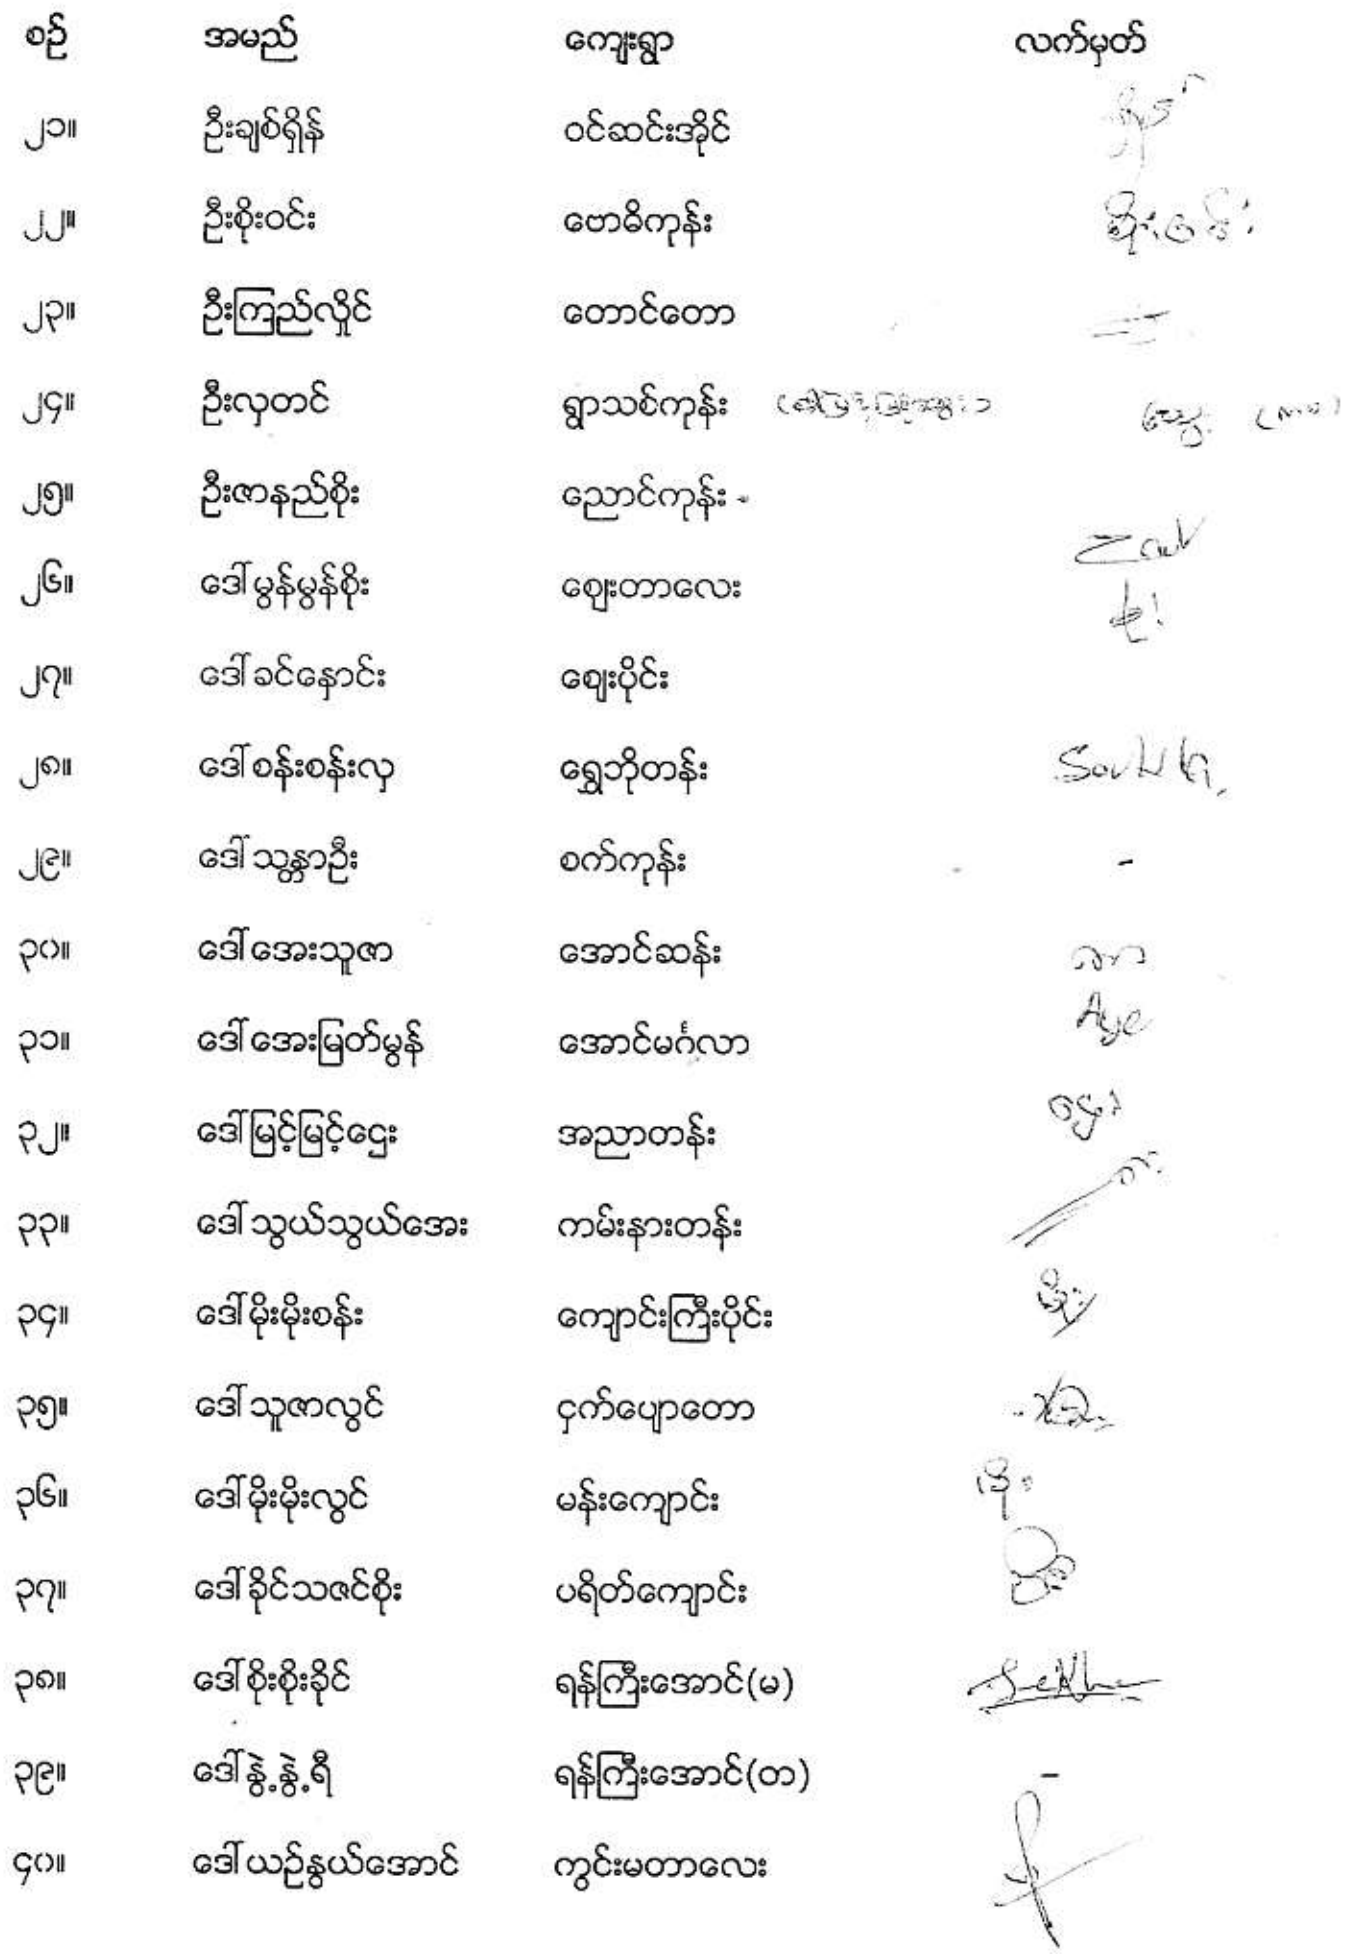 စဉ် အမည် ကျေးရွာ လက်မှတ်
၂၁။ ဦးချစ်ရှိန် ဝင်ဆင်းအိုင်
၂၂။ ဦးစိုးဝင်း ဗောဓိကုန်း စိုးဝင်း
၂၃။ ဦးကြည်လှိုင် တောင်တော
၂၄။ ဦးလှတင် ရွာသစ်ကုန်း
၂၅။ ဦးဇာနည်စိုး ညောင်ကုန်း
၂၆။ ဒေါ်မွန်မွန်စိုး ဈေးတာလေး
၂၇။ ဒေါ်ခင်နှောင်း ဈေးပိုင်း
၂၈။ ဒေါ်စန်းစန်းလှ ရွှေဘိုတန်း
၂၉။ ဒေါ်သန္တာဦး စက်ကုန်း -
၃၀။ ဒေါ်အေးသူဇာ အောင်ဆန်း
၃၁။ ဒေါ်အေးမြတ်မွန် အောင်မင်္ဂလာ Aye
၃၂။ ဒေါ်မြင့်မြင့်ဌေး အညာတန်း
၃၃။ ဒေါ်သွယ်သွယ်အေး ကမ်းနားတန်း
၃၄။ ဒေါ်မိုးမိုးစန်း ကျောင်းကြီးပိုင်း မိုး
၃၅။ ဒေါ်သူဇာလွင် ငှက်ပျောတော
၃၆။ ဒေါ်မိုးမိုးလွင် မန်းကျောင်း
၃၇။ ဒေါ်ခိုင်သဇင်စိုး ပရိတ်ကျောင်း
၃၈။ ဒေါ်စိုးစိုးခိုင် ရန်ကြီးအောင်(မ)
၃၉။ ဒေါ်နွဲ့နွဲ့ရီ ရန်ကြီးအောင်(တ) -
၄၀။ ဒေါ်ယဉ်နွယ်အောင် ကွင်းမတာလေး